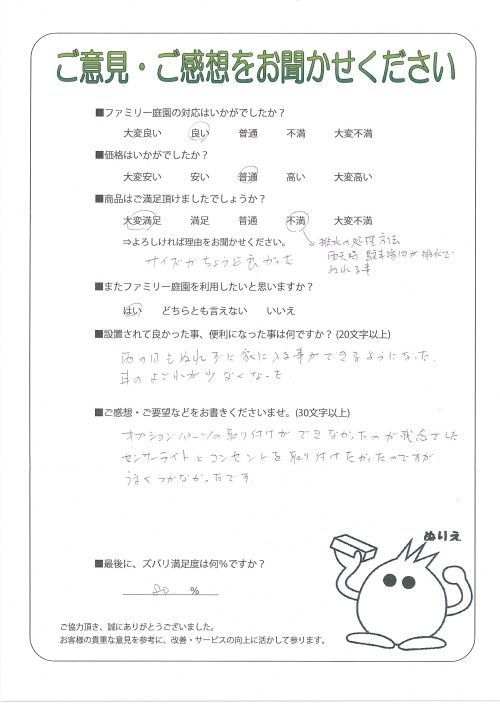 ご意見・ご感想をお聞かせください
■ファミリー庭園の対応はいかがでしたか？
大変良い 良い 普通 不満 大変不満
■価格はいかがでしたか？
大変安い 安い 普通 高い 大変高い
■商品はご満足頂けましたでしょうか？
大変満足 満足 普通 不満 大変不満
⇒よろしければ理由をお聞かせください。
サイズがちょうど良かった
排水の処理方法
雨天時、駐車場内が排水で
ぬれる事
■またファミリー庭園を利用したいと思いますか？
はい どちらとも言えない いいえ
■設置されて良かった事、便利になった事は何ですか？(20文字以上)
雨の日もぬれずに家に入る事ができるようになった。
車のよごれが少なくなった。
■ご感想・ご要望などをお書きくださいませ。(30文字以上)
オプションパーツの取り付けができなかったのが残念でした。
センサーライトとコンセントを取り付けたかったのですが
うまくつかなかったです。
ぬりえ
■最後に、ズバリ満足度は何%ですか？
80 %
ご協力頂き、誠にありがとうございました。
お客様の貴重な意見を参考に、改善・サービスの向上に活かして参ります。